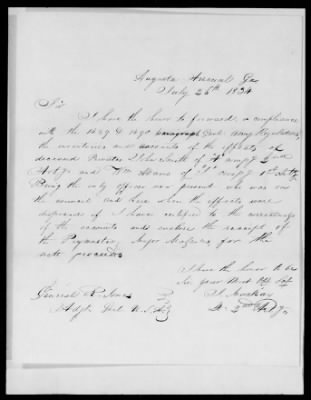 Augusta Arsenal Ga
July 26th 1834
Sir
I have the honor to forward, in compliance
with the 1489 & 1490 paragraph Genl Army Regulations,
the inventories and accounts of the effects of
deceased Privates John Smith of "A" Compy 2nd
Art'y and Wm Adams of Compy 1st Art'y
Being the only officer now present who was on
the council and here when the effects were
disposed of I have certified to the correctness
of the accounts and enclose the receipt of
the Paymaster, Major for the
nett proceeds
I have the honor to be
Sir your Most Obt Svt
General R. Jones
Adjt Genl U.S.A. 2nd Art'y